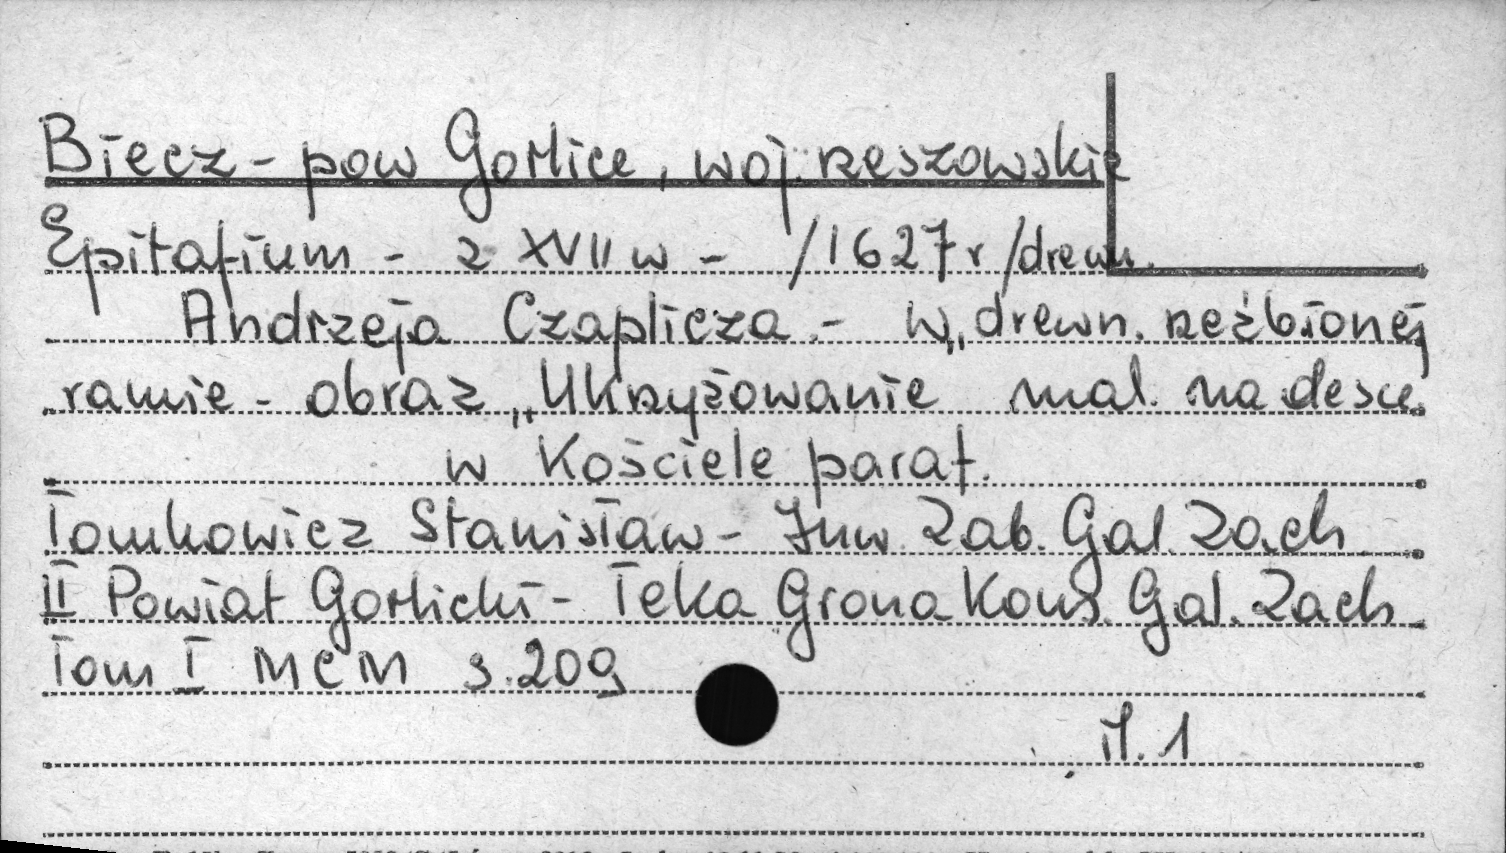 Biecz - pow Gorlice, woj. rzeszowskie
Epitafium - z XVII w - /1627 r /drewn.
Andrzeja Czaplicza - w drewn. rzeźbionej
ramie - obraz „Ukrzyżowanie mal. na desce
w Kościele paraf.
Tomkowicz Stanisław - Inw. Zab. Gal. Zach
II Powiat Gorlicki - Teka Grona Kons. Gal. Zach
Tom I MCM s. 209
il. 1